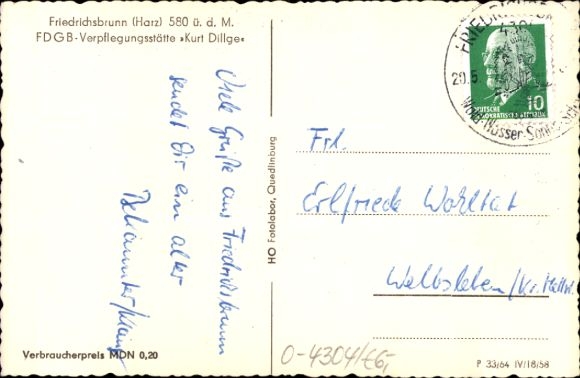 Friedrichsbrunn (Harz) 580 ü. d. M.
FDGB-Verpflegungsstätte »Kurt Dillge«
Viele Grüße aus Friedrichsbrunn
sendet Dir ein alter
Bekannter/
Verbraucherpreis MDN 0,20
HO Fotolabor, Quedlinburg
20.5
Wald-Wasser-Sonne
10
DEUTSCHE
DEMOKRATISCHE REPUBLIK
Frl.
Erlfriede Wohltat
Welbsleben/Kr. Hettst.
0-4304/€6,-
P 33/64 IV/18/58